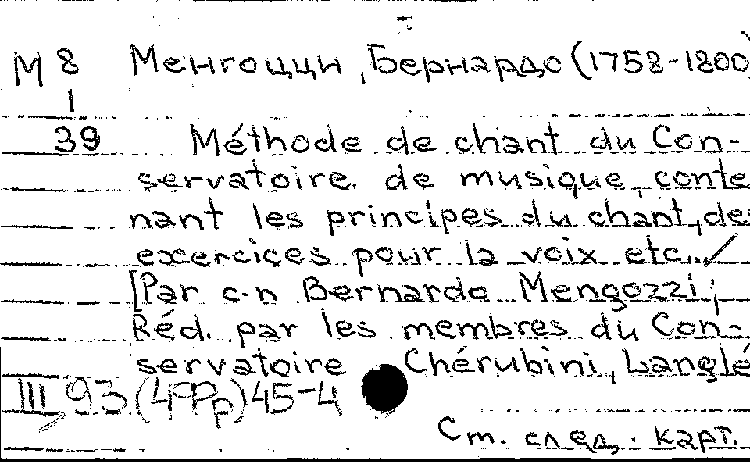 М 8 Менгоцци, Бернардо (1758-1800)
1
39 Méthode de chant du Con-
servatoire de musique, conte
nant les principes du chant, des
exercices pour la voix etc../
[Par c-n Bernardo Mengozzi;
Réd. par les membres du Con-
servatoire Chérubini, Langlé
III, 93 (4PPp) 45-4
Ст. след. карт.